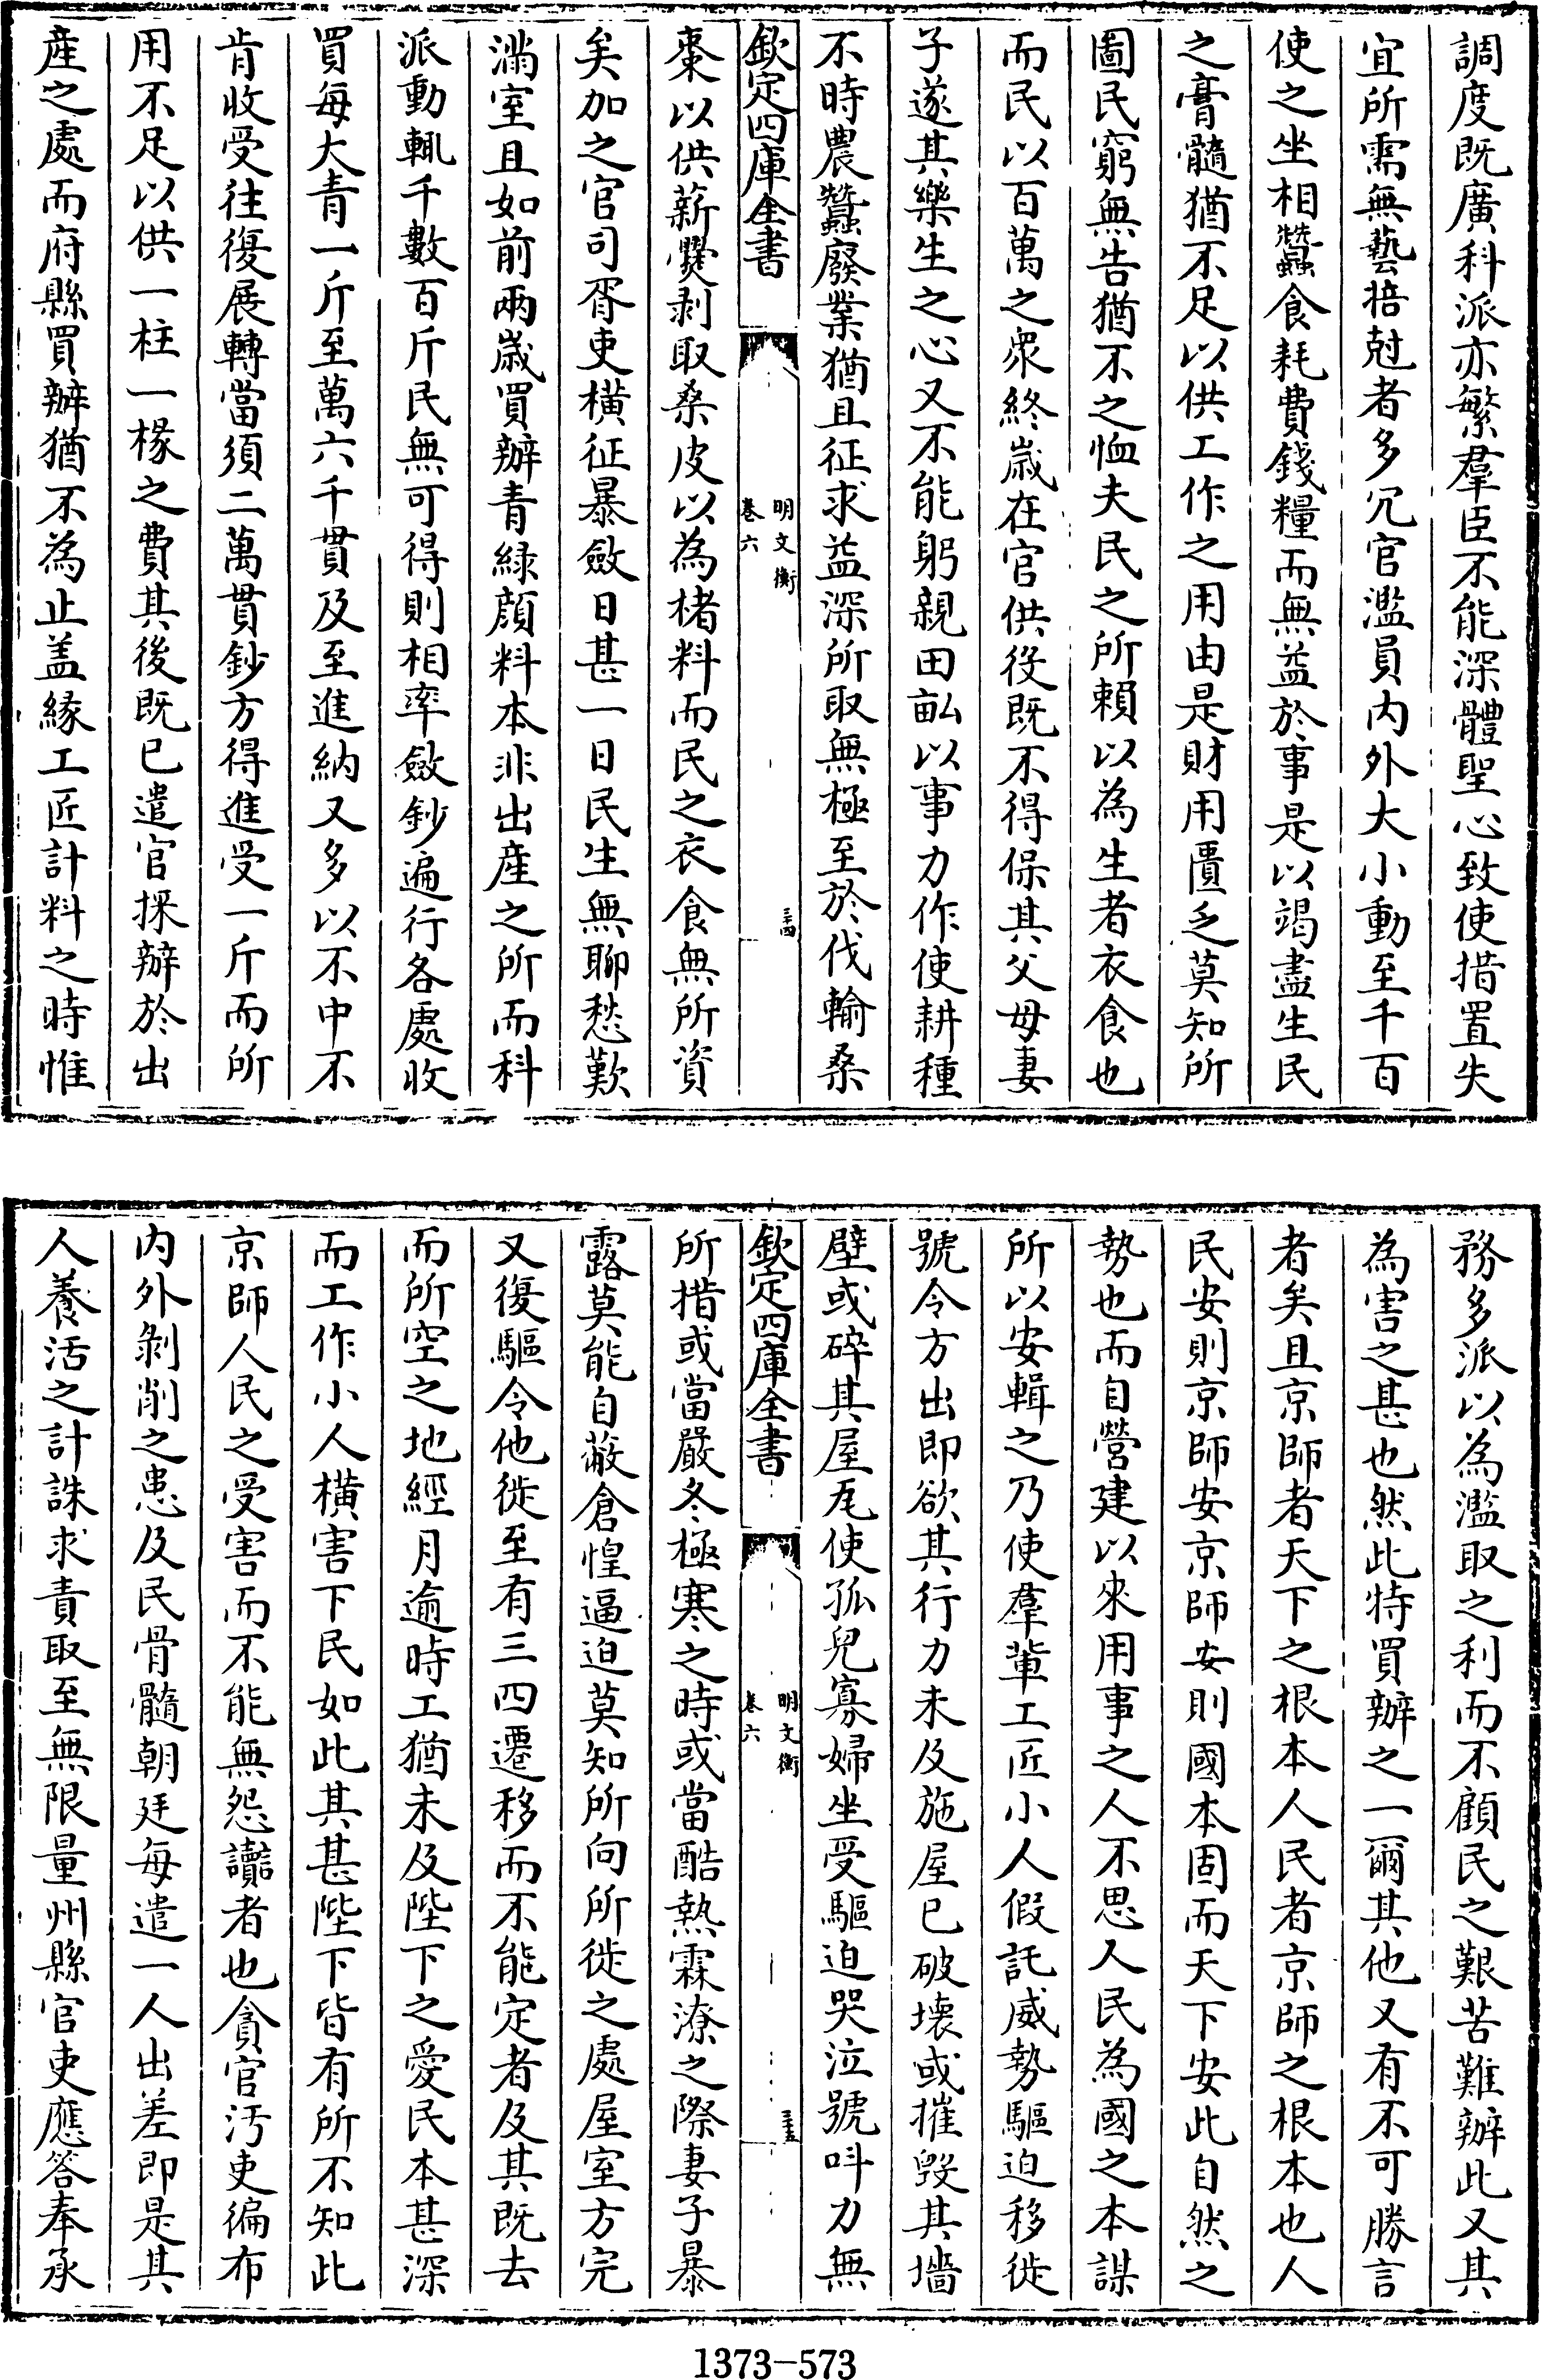 調度既廣科派亦繁羣臣不能深體聖心致使措置失
宜所需無藝掊尅者多冗官濫員内外大小動至千百
使之坐相蠶食耗費錢糧而無益於事是以竭盡生民
之膏髓猶不足以供工作之用由是財用匱乏莫知所
圖民窮無告猶不之恤夫民之所賴以為生者衣食也
而民以百萬之衆終歲在官供役既不得保其父母妻
子遂其樂生之心又不能躬親田畝以事力作使耕種
不時農蠶廢業猶且征求益深所取無極至於伐輸桑
欽定四庫全書
明文衡
卷六
三四
棗以供薪爨剥取桑皮以為楮料而民之衣食無所資
矣加之官司胥吏横征暴斂日甚一日民生無聊愁歎
滿室且如前兩歲買辦青緑顔料本非出產之所而科
派動輒千數百斤民無可得則相率斂鈔遍行各處收
買每大青一斤至萬六千貫及至進納又多以不中不
肯收受往復展轉當須二萬貫鈔方得進受一斤而所
用不足以供一柱一椽之費其後既已遣官採辦於出
產之處而府縣買辦猶不為止盖緣工匠計料之時惟
務多派以為濫取之利而不顧民之艱苦難辦此又其
為害之甚也然此特買辦之一爾其他又有不可勝言
者矣且京師者天下之根本人民者京師之根本也人
民安則京師安京師安則國本固而天下安此自然之
勢也而自營建以來用事之人不思人民為國之本謀
所以安輯之乃使羣輩工匠小人假託威勢驅迫移徙
號令方出即欲其行力未及施屋已破壊或摧毁其墻
壁或碎其屋瓦使孤兒寡婦坐受驅迫哭泣號呌力無
欽定四庫全書
明文衡
卷六
三五
所措或當嚴冬極寒之時或當酷熱霖潦之際妻子暴
露莫能自蔽倉惶逼迫莫知所向所徙之處屋室方完
又復驅令他徙至有三四遷移而不能定者及其既去
而所空之地經月逾時工猶未及陛下之愛民本甚深
而工作小人横害下民如此其甚陛下皆有所不知此
京師人民之受害而不能無怨讟者也貪官汚吏徧布
内外剥削之患及民骨髓朝廷每遣一人出差即是其
人養活之計誅求責取至無限量州縣官吏應答奉承
1373-573